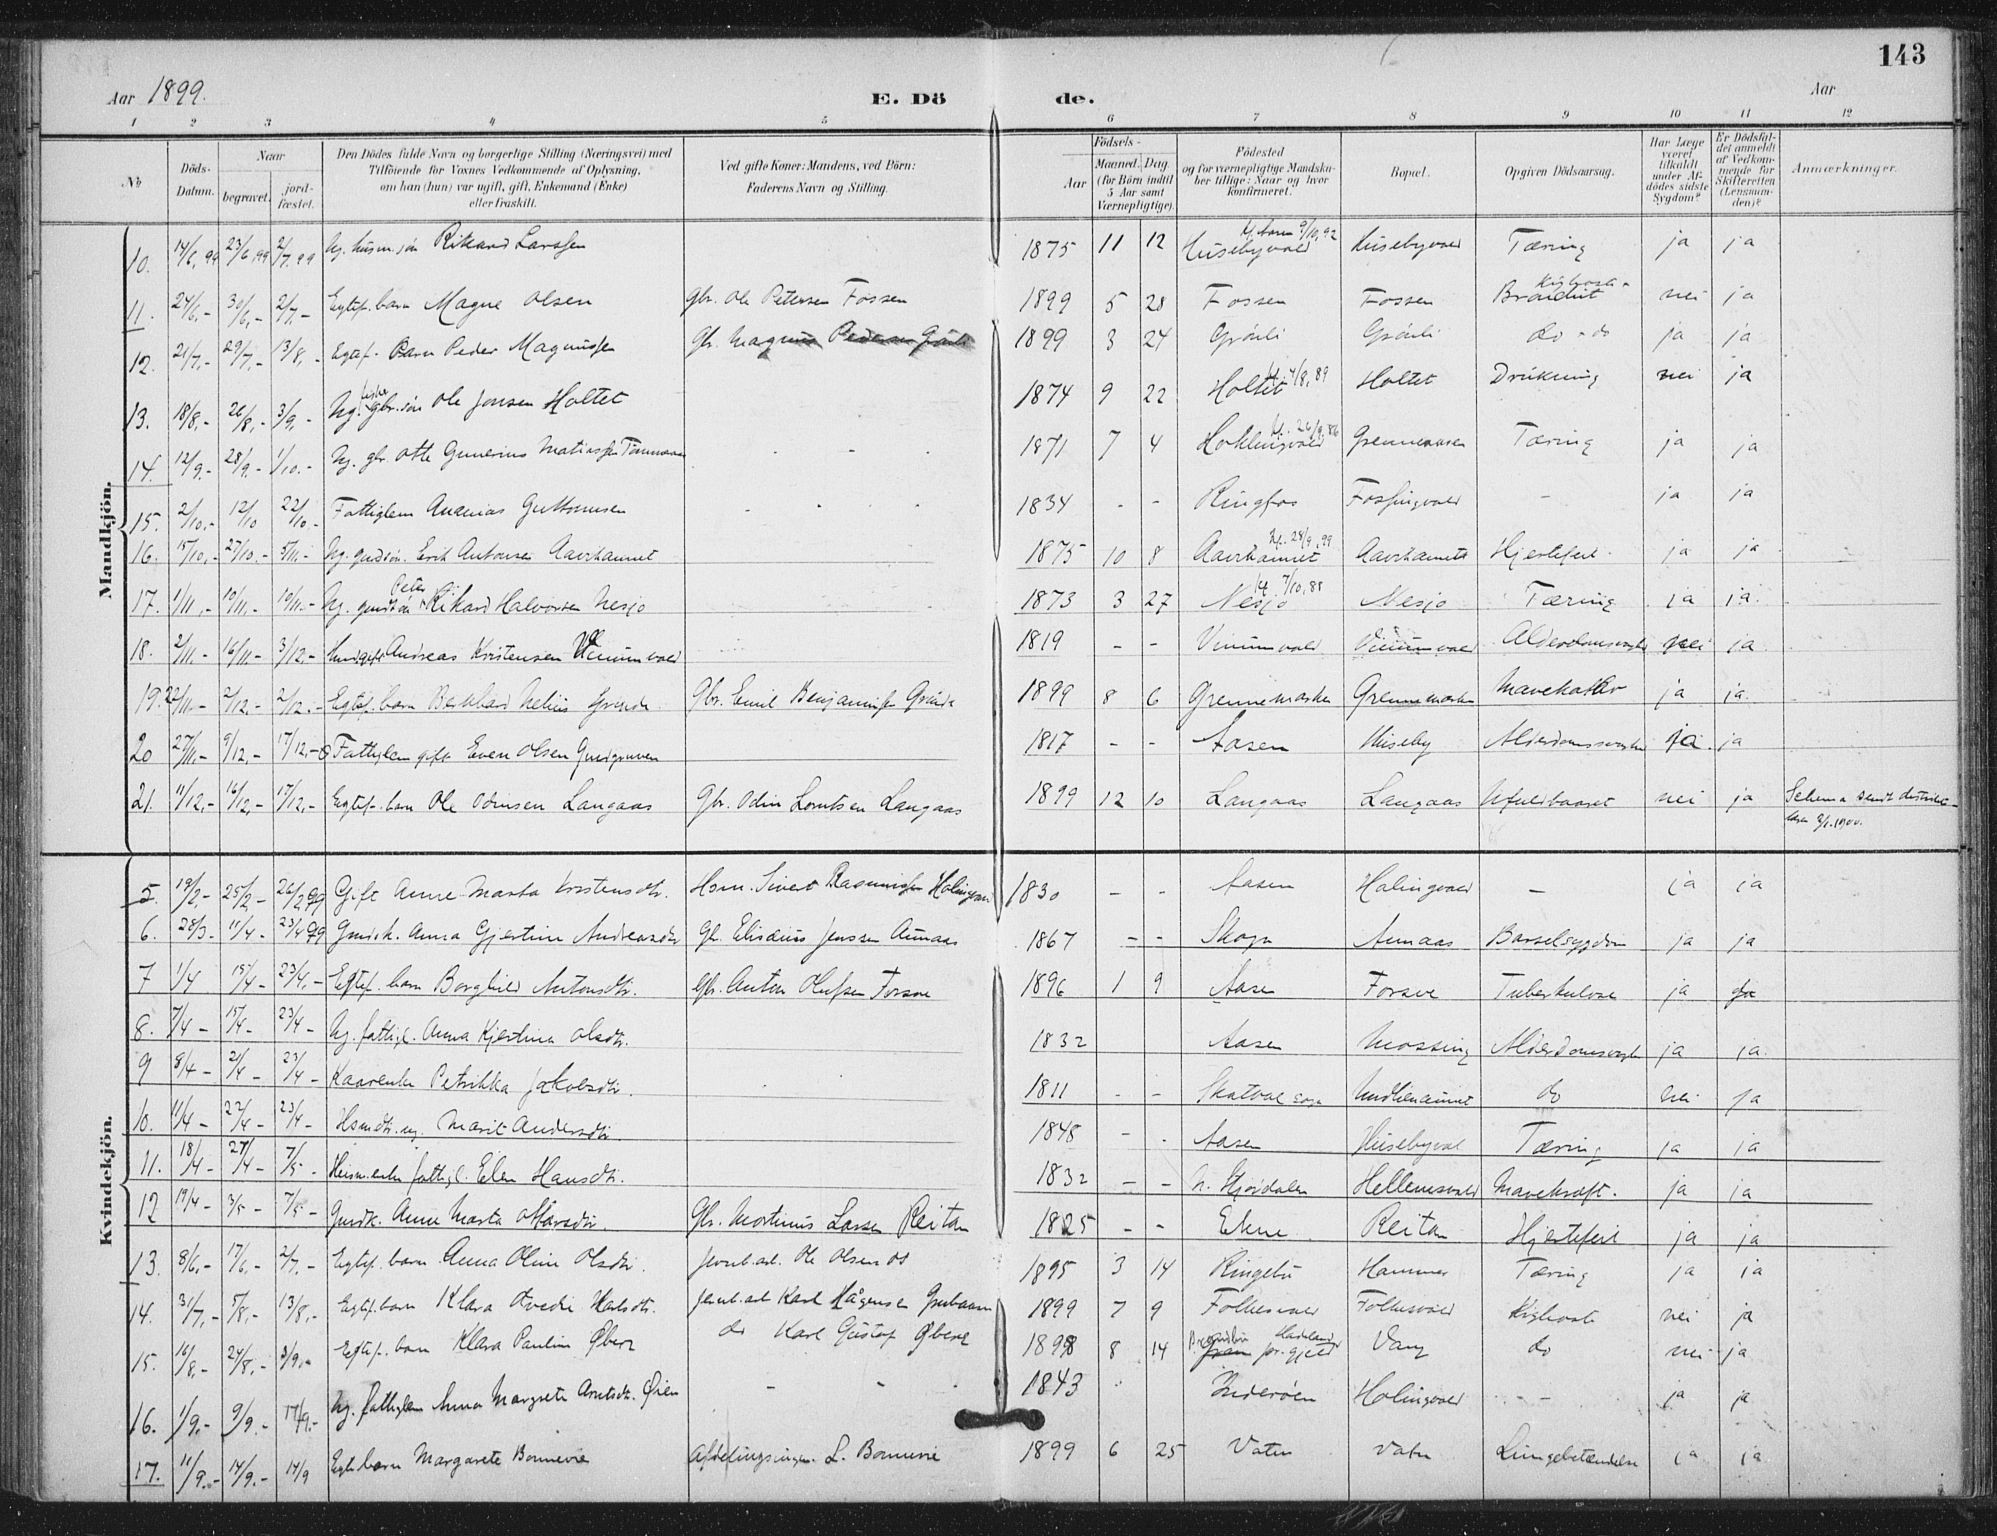 143
Aar 1899.
E. Döde.
Aar
1 2 3 4 5 6 7 8 9 10 11 12
No
Döds-Datum.
Naar begravet. jordfæstet.
Den Dödes fulde Navn og borgerlige Stilling (Næringsvei) med Tilföiende for Voxnes Vedkommende af Oplysning, om han (hun) var ugift, gift, Enkemand (Enke) eller fraskilt.
Ved gifte Koner: Mandens, ved Börn: Faderens Navn og Stilling.
Födsels- Aar Maaned. Dag. (for Börn indtil 5 Aar samt Værnepligtige).
Födested og for værnepligtige Mandskaber tillige: Naar og hvor konfirmeret.
Bopæl.
Opgiven Dödsaarsag.
Har Læge været tilkaldt under Afdödes sidste Sygdom?
Er Dödsfaldet anmeldt af Vedkommende for Skifteretten (Lensmanden)?
Anmærkninger.
Mandkjön.
10. 14/6, 99 23/6 1899 2/7.99 Ug. husm.sön Rikard Larssen 1875 11 12 Husebyvald Husebyvald Tæring ja ja
11. 24/6,- 30/6,- 2/7,- Egtef. barn Magne Olsen Gbr. Ole Petersen Fossen 1899 5 28 Fossen Fossen Kighoste nei ja
12. 21/7,- 29/7,- 13/8,- Egtef. Barn Peder Magnussen Gbr. Magnus Pedersen Grönli 1899 3 24 Grönli Grönli do - do ja ja
13. 18/8,- 26/8,- 3/9,- Ug. fisker gbr.sön Ole Jonsen Holtet 1874 9 22 Holtet 4/8, 89 Holtet Drukning nei ja
14. 12/9.- 28/9- 1/10.- Ug. gbr. Otte Gunerius Matiassen 1871 7 4 26/9, 86 Tæring ja ja
15. 2/10,- 12/10 22/10.- Fattiglem Ananias Guttormsen 1834 - - Ringfos Fossingvald - ja ja
16. 15/10,- 27/10.- 5/11.- Ug. Erik Antonsen Aavrhammet 1875 10 8 Aavrhammet 28/9, 99 Hjertefeil. ja ja
17. 1/11,- 10/11.- 19/11.- Ug. Peter Rikard Halvorsen Nesjo 1873 3 27 Nesjo 7/10, 88 Nesjo Tæring ja ja.
18. 2/11.- 16/11- 3/12.- Andreas Kristensen Vinumvald 1819 - - Vinumvald Vinumvald nei ja.
19. 22/11.- 2/12.- 2/12.- Egtef. barn Nelius Gbr. Emil Benjaminsen 1899 8 6 Grennemarken Grennemarken Mavekatar ja ja.
20 27/11.- 9/12,- 17/12,- Fattiglem gift Even Olsen 1817 - - Aasen Huseby ja. ja
21. 11/12,- 16/12,- 17/12,- Egtef. barn Ole Odinsen Langaas Gbr. Odin Lorntsen Langaas 1899 12 10 Langaas Langaas Ufuldbaaret nei ja Schema sendt 3/1.1900.
Kvindekjön.
5. 19/2- 25/2,- 26/2.99 Gift Anne Marta Kristensdtr. Hsm. Sivert Rasmussen 1830 - - Aasen Holingvald - ja ja
6. 28/3- 11/4- 23/4 99 Gmdk. Anna Gjertine Andreasdtr Gb. Elisæus Jenssen Aunaas 1867 - - Skogn Aunaas Barselsygdom ja ja
7 1/4 15/4- 23/4,- Egtef. barn Borghild Antonsdtr. Gbr. Anton Olufsen Forsve 1896 1 9 Aasen Forsve Tuberkulose ja ja
8. 7/4- 15/4- 23/4- Ug. fattigl. Anna Kjerstina Olsdtr. 1832 Aasen Mossing ja ja.
9 8/4- 21/4- 23/4- Petrikka Jakobsdtr. 1811 - - Skatval sogn do nei ja
10. 11/4- 22/4- 23/4- Hsmdtr. ug. Marit Andersdtr. 1848 - . Aasen Husebyval Tæring ja ja
11. 18/4- 27/4- 7/5- Husm.enke fattigl. Elen Hansdtr. 1832 - - N. Stjördalen Hellemsvald Mavekræft. ja ja
12 19/4- 3/5- 7/5- Gmdk. Anne Marta Gbr. Mortinus Larsen Reitan 1825 - - Ekne Reitan Hjertefeil ja ja
13. 8/6,- 17/6,- 2/7.- Egtef. barn Anna Oline Olsdtr. Jernb.arb. Ole Olsen 1895 3 14 Ringebu Hammer Tæring ja ja
14. 31/7,- 5/8,- 13/8,- Egtef. barn Klara Karlsdtr. Jernb.arb Karl Hågensen 1899 7 9 Folkesvald Folkesvald Kighoste nei ja
15. 16/8,- 24/8,- 3/9,- Egtef. barn Klara Pauline Öberg do Karl Gustaf Öberg 1898 8 14 Hadeland pr.gjeld Vang do nei ja
16. 1/9.- 9/9.- 17/9.- Ug. fattiglem Anna Margrete Arntsdtr. Öien - - 1843 Inderöen Holingvald - - ja ja
17. 11/9.- 14/9.- 14/9 Egte barn Margarete Bonnevie Afdelingsingen. L. Bonnevie 1899 6 25 Vatn Vatn Lungebetændelse ja ja